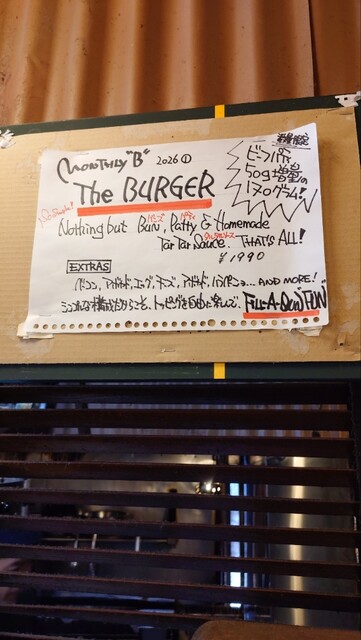 MONTHLY "B" 2026 ①
The BURGER
数量限定
ビーフパティ
50g増量の
170グラム!
Nothing but Bun, Patty & Homemade
バンズ パティ
Tar Tar Sauce. THAT'S ALL!
タルタルソース
¥1990
EXTRAS
ベーコン, アボカド, エッグ, チーズ, ハラペーニョ... AND MORE!
シンプルな構成だからこそ、トッピングを自由に楽しんで。 FILL-A-BUN "FUN"